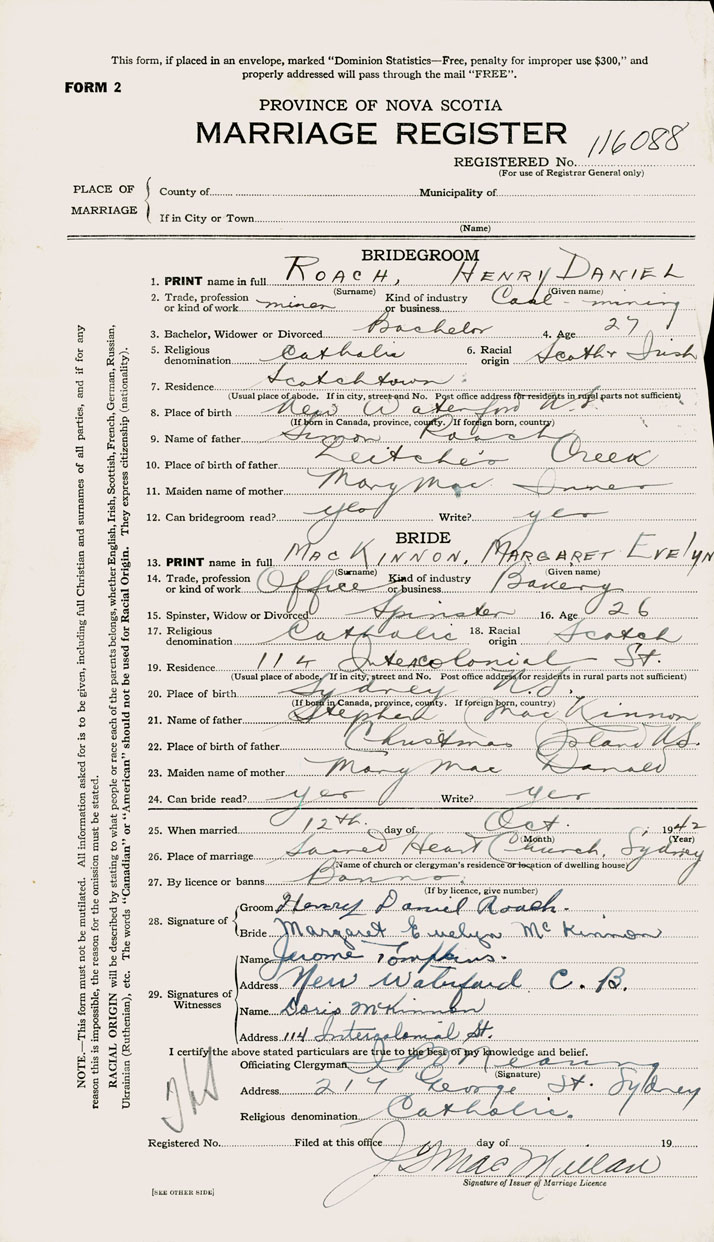 This form, if placed in an envelope, marked "Dominion Statistics—Free, penalty for improper use $300," and
properly addressed will pass through the mail "FREE".
FORM 2
PROVINCE OF NOVA SCOTIA
MARRIAGE REGISTER
116088
REGISTERED No.
(For use of Registrar General only)
PLACE OF MARRIAGE
County of Municipality of
If in City or Town
(Name)
BRIDEGROOM
1. PRINT name in full ROACH, HENRY DANIEL
(Surname) (Given name)
2. Trade, profession or kind of work miner Kind of industry or business Coal-mining
3. Bachelor, Widower or Divorced Bachelor 4. Age 27
5. Religious denomination Catholic 6. Racial origin Scotch & Irish
7. Residence Scotchtown
(Usual place of abode. If in city, street and No. Post office address for residents in rural parts not sufficient)
8. Place of birth New Waterford N.S.
(If born in Canada, province, county. If foreign born, country)
9. Name of father Simon Roach
10. Place of birth of father Leitche's Creek
11. Maiden name of mother Mary Mac Innes
12. Can bridegroom read? yes Write? yes
BRIDE
13. PRINT name in full MACKINNON, MARGARET EVELYN
(Surname) (Given name)
14. Trade, profession or kind of work Office Kind of industry or business Bakery
15. Spinster, Widow or Divorced Spinster 16. Age 26
17. Religious denomination Catholic 18. Racial origin Scotch
19. Residence 114 Intercolonial St.
(Usual place of abode. If in city, street and No. Post office address for residents in rural parts not sufficient)
20. Place of birth Sydney N.S.
(If born in Canada, province, county. If foreign born, country)
21. Name of father Stephen Mac Kinnon
22. Place of birth of father Christmas Island N.S.
23. Maiden name of mother Mary Mac Donald
24. Can bride read? yes Write? yes
25. When married 12th. day of Oct. 1942
(Month) (Year)
26. Place of marriage Sacred Heart Church, Sydney
(Name of church or clergyman's residence or location of dwelling house)
27. By licence or banns Banns.
(If by licence, give number)
28. Signature of
Groom Henry Daniel Roach.
Bride Margaret Evelyn McKinnon
29. Signatures of Witnesses
Name Jerome Tompkins.
Address New Waterford C. B.
Name Doris McKinnon
Address 114 Intercolonial St.
I certify the above stated particulars are true to the best of my knowledge and belief.
Officiating Clergyman
(Signature)
Address 217 George St. Sydney
Religious denomination Catholic.
Registered No. Filed at this office day of 19
MacMullan
Signature of Issuer of Marriage Licence
[SEE OTHER SIDE]
NOTE.—This form must not be mutilated. All information asked for is to be given, including full Christian and surnames of all parties, and if for any
reason this is impossible, the reason for the omission must be stated.
RACIAL ORIGIN will be described by stating to what people or race each of the parents belongs, whether English, Irish, Scottish, French, German, Russian,
Ukrainian (Ruthenian), etc. The words "Canadian" or "American" should not be used for Racial Origin. They express citizenship (nationality).